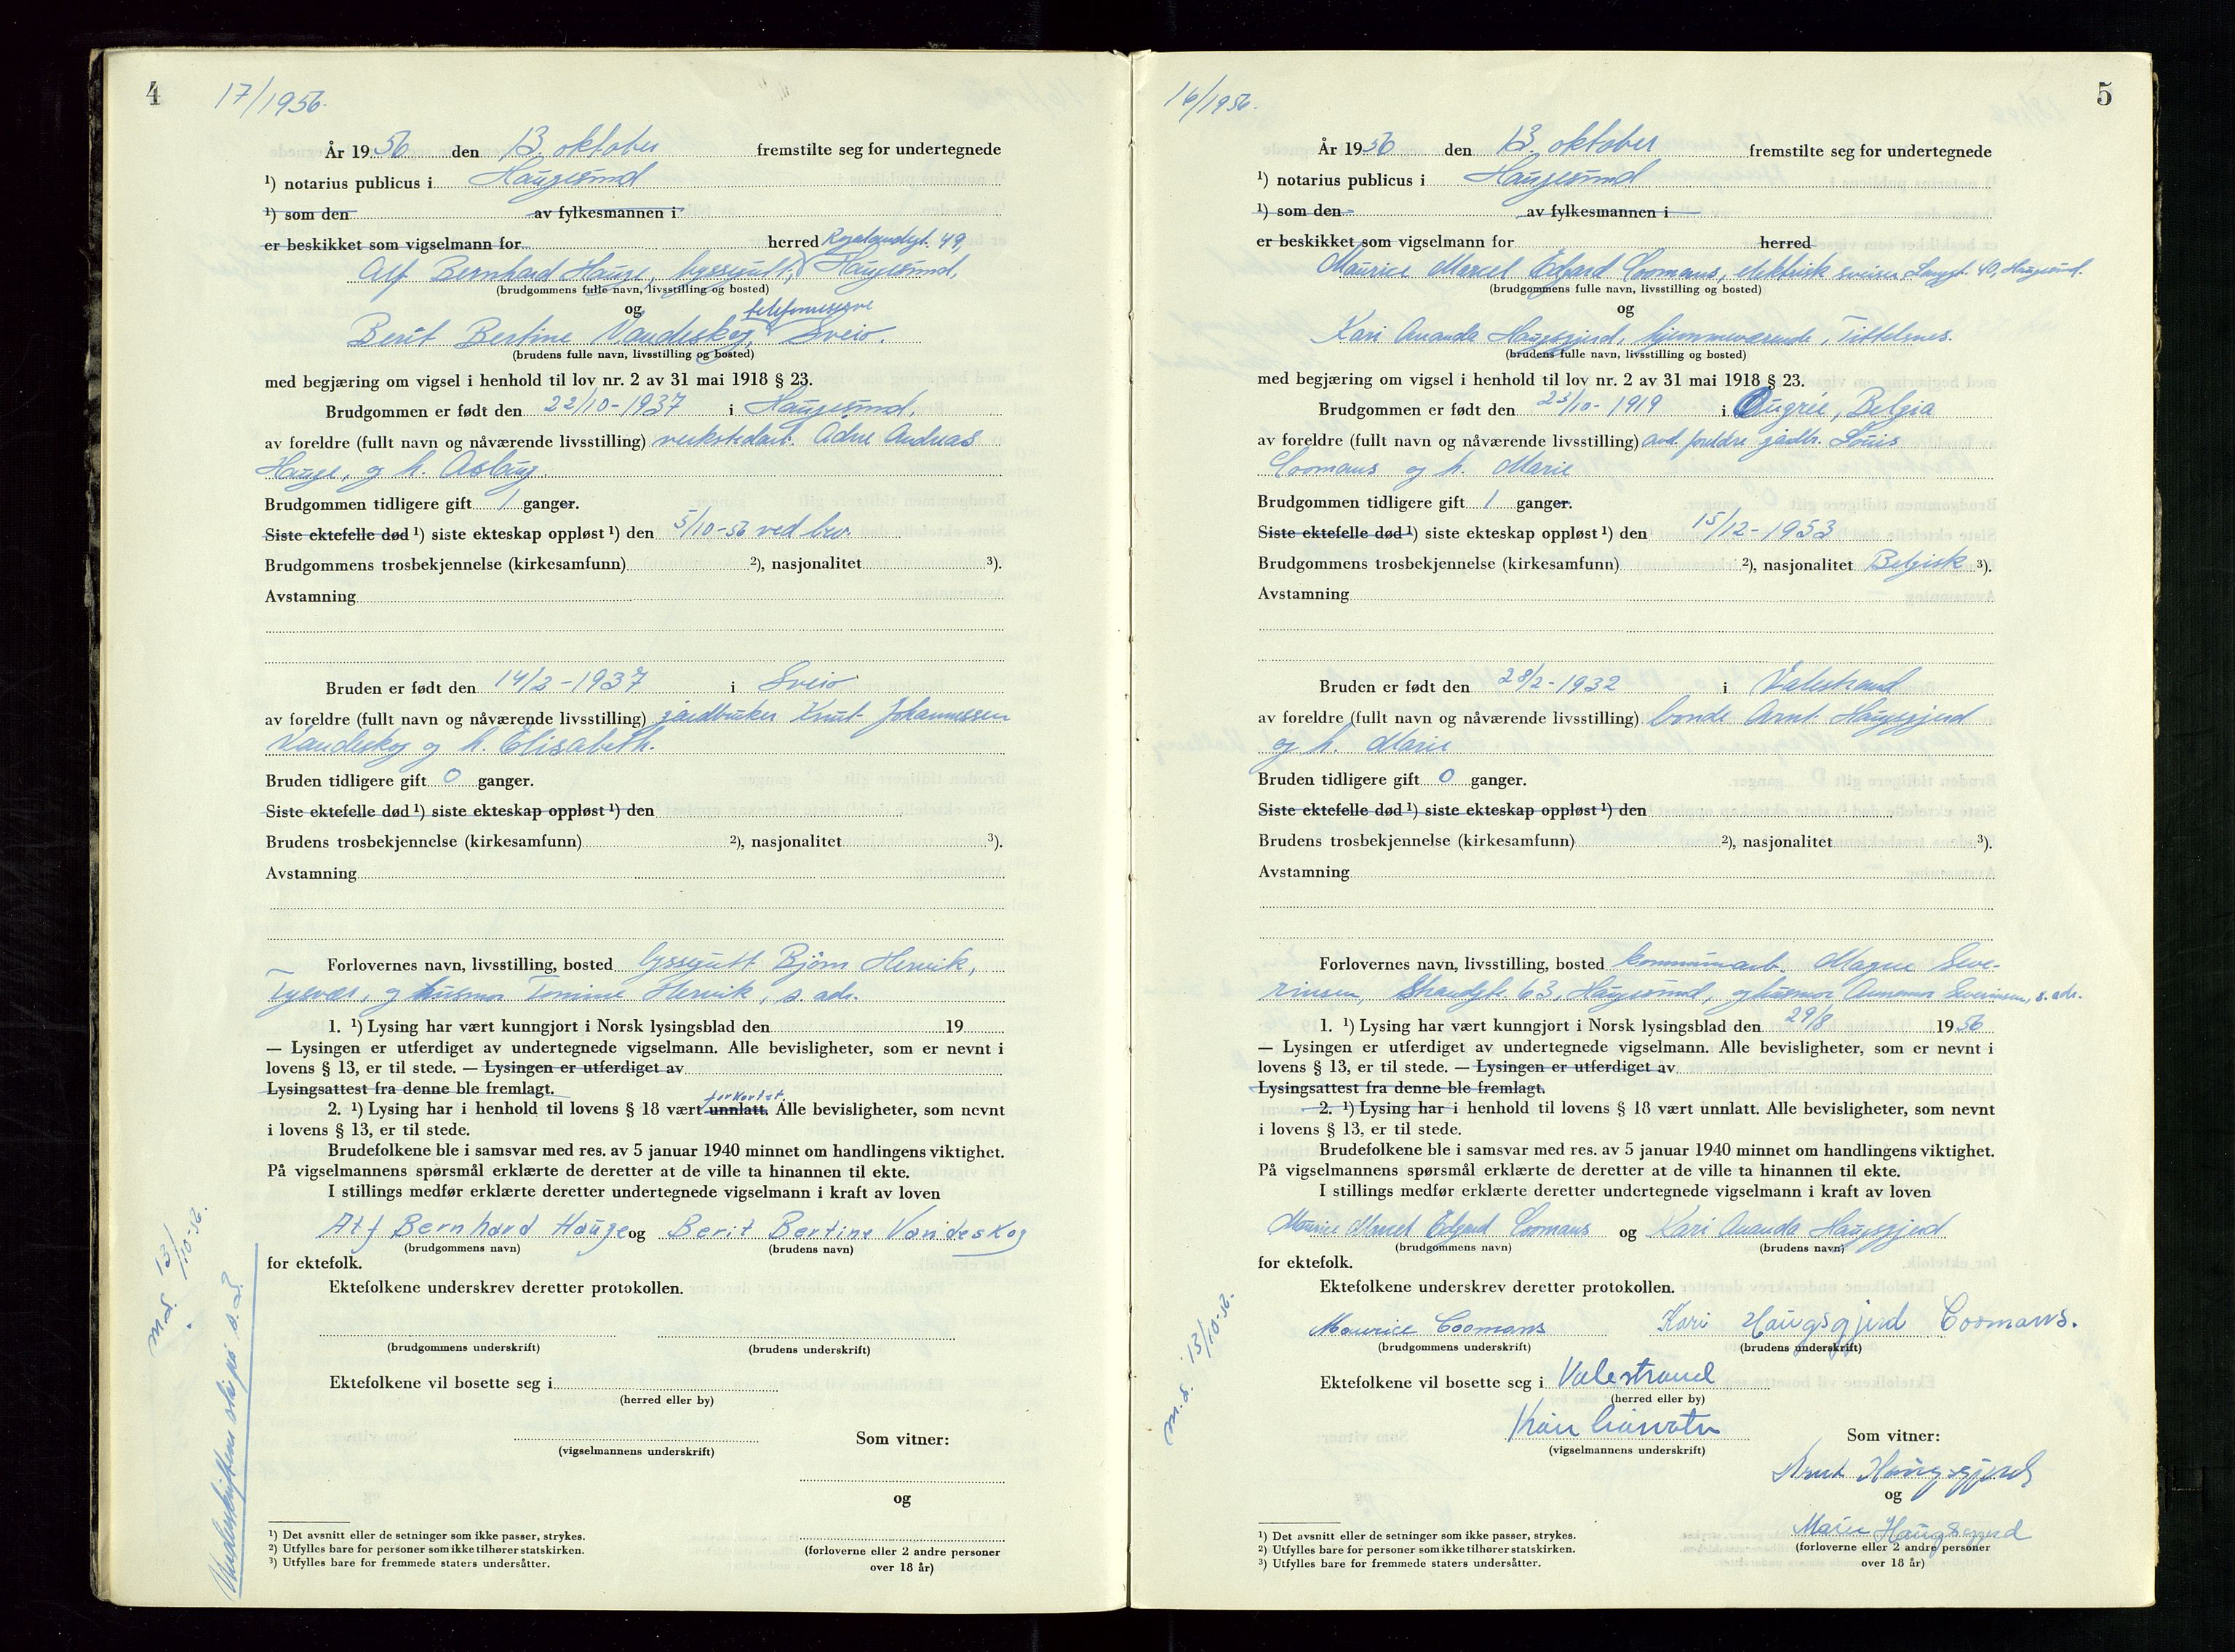 4
17/1956.
År 1956 den 13. oktober fremstilte seg for undertegnede
¹) notarius publicus i Haugesund
¹) som den av fylkesmannen i
er beskikket som vigselmann for herred Rogalandsgt. 49,
Alf Bernhard Hauge, byssegutt, Haugesund,
(brudgommens fulle navn, livsstilling og bosted)
og
telefonreserve
Berit Bertine Vandeskog, Sveio.
(brudens fulle navn, livsstilling og bosted)
med begjæring om vigsel i henhold til lov nr. 2 av 31 mai 1918 § 23.
Brudgommen er født den 22/10-1937 i Haugesund,
av foreldre (fullt navn og nåværende livsstilling) verkstedarb. Adne Andreas
Hauge, og h. Aslaug.
Brudgommen tidligere gift 1 ganger.
Siste ektefelle død ¹) siste ekteskap oppløst ¹) den 5/10-56 ved bev.
Brudgommens trosbekjennelse (kirkesamfunn) ²), nasjonalitet ³).
Avstamning
Bruden er født den 14/2-1937 i Sveio
av foreldre (fullt navn og nåværende livsstilling) jordbruker Knut Johannessen
Vandeskog og h. Elisabeth.
Bruden tidligere gift 0 ganger.
Siste ektefelle død ¹) siste ekteskap oppløst ¹) den
Brudens trosbekjennelse (kirkesamfunn) ²), nasjonalitet ³).
Avstamning
Forlovernes navn, livsstilling, bosted byssegutt Bjørn Hervik,
Tysvær, og husmor Tomine Hervik, s. adr.
1. ¹) Lysing har vært kunngjort i Norsk lysingsblad den 19
— Lysingen er utferdiget av undertegnede vigselmann. Alle bevisligheter, som er nevnt i
lovens § 13, er til stede. — Lysingen er utferdiget av
Lysingsattest fra denne ble fremlagt.
forkortet
2. ¹) Lysing har i henhold til lovens § 18 vært unnlatt. Alle bevisligheter, som nevnt
i lovens § 13, er til stede.
Brudefolkene ble i samsvar med res. av 5 januar 1940 minnet om handlingens viktighet.
På vigselmannens spørsmål erklærte de deretter at de ville ta hinannen til ekte.
I stillings medfør erklærte deretter undertegnede vigselmann i kraft av loven
Alf Bernhard Hauge og Berit Bertine Vandeskog
(brudgommens navn) (brudens navn)
for ektefolk.
Ektefolkene underskrev deretter protokollen.
(brudgommens underskrift) (brudens underskrift)
Ektefolkene vil bosette seg i
(herred eller by)
(vigselmannens underskrift)
Som vitner:
og
(forloverne eller 2 andre personer
over 18 år)
¹) Det avsnitt eller de setninger som ikke passer, strykes.
²) Utfylles bare for personer som ikke tilhører statskirken.
³) Utfylles bare for fremmede staters undersåtter.
m.d. 13/10-56.
Underskriftene står på s. 2.
5
16/1956.
År 1956 den 13. oktober fremstilte seg for undertegnede
¹) notarius publicus i Haugesund
¹) som den av fylkesmannen i
er beskikket som vigselmann for herred
Maurice Marcel Edgard Coomans, elektrisk sveiser, Langgt. 40, Haugesund.
(brudgommens fulle navn, livsstilling og bosted)
og
Kari Ananda Haugsgjerd, hjemmeværende, Tittelsnes.
(brudens fulle navn, livsstilling og bosted)
med begjæring om vigsel i henhold til lov nr. 2 av 31 mai 1918 § 23.
Brudgommen er født den 23/10-1919 i Ougrée, Belgia
av foreldre (fullt navn og nåværende livsstilling) avd. foreldre gårdbr. Louis
Coomans og h. Marie
Brudgommen tidligere gift 1 ganger.
Siste ektefelle død ¹) siste ekteskap oppløst ¹) den 15/12-1953
Brudgommens trosbekjennelse (kirkesamfunn) ²), nasjonalitet Belgisk ³).
Avstamning
Bruden er født den 28/2-1932 i Valestrand
av foreldre (fullt navn og nåværende livsstilling) bonde Arnt Haugsgjerd
og h. Marie
Bruden tidligere gift 0 ganger.
Siste ektefelle død ¹) siste ekteskap oppløst ¹) den
Brudens trosbekjennelse (kirkesamfunn) ²), nasjonalitet ³).
Avstamning
Forlovernes navn, livsstilling, bosted kommunearb. Magne Seve-
rinsen, Strandgt. 63, Haugesund, og husmor Severinsen, s. adr.
1. ¹) Lysing har vært kunngjort i Norsk lysingsblad den 29/8 1956
— Lysingen er utferdiget av undertegnede vigselmann. Alle bevisligheter, som er nevnt i
lovens § 13, er til stede. — Lysingen er utferdiget av
Lysingsattest fra denne ble fremlagt.
2. ¹) Lysing har i henhold til lovens § 18 vært unnlatt. Alle bevisligheter, som nevnt
i lovens § 13, er til stede.
Brudefolkene ble i samsvar med res. av 5 januar 1940 minnet om handlingens viktighet.
På vigselmannens spørsmål erklærte de deretter at de ville ta hinannen til ekte.
I stillings medfør erklærte deretter undertegnede vigselmann i kraft av loven
Maurice Marcel Edgard Coomans og Kari Ananda Haugsgjerd
(brudgommens navn) (brudens navn)
for ektefolk.
Ektefolkene underskrev deretter protokollen.
Maurice Coomans Kari Haugsgjerd Coomans.
(brudgommens underskrift) (brudens underskrift)
Ektefolkene vil bosette seg i Valestrand
(herred eller by)
(vigselmannens underskrift)
Som vitner:
Arnt Haugsgjerd
og
Marie Haugsgjerd
(forloverne eller 2 andre personer
over 18 år)
¹) Det avsnitt eller de setninger som ikke passer, strykes.
²) Utfylles bare for personer som ikke tilhører statskirken.
³) Utfylles bare for fremmede staters undersåtter.
m.d. 13/10-56.